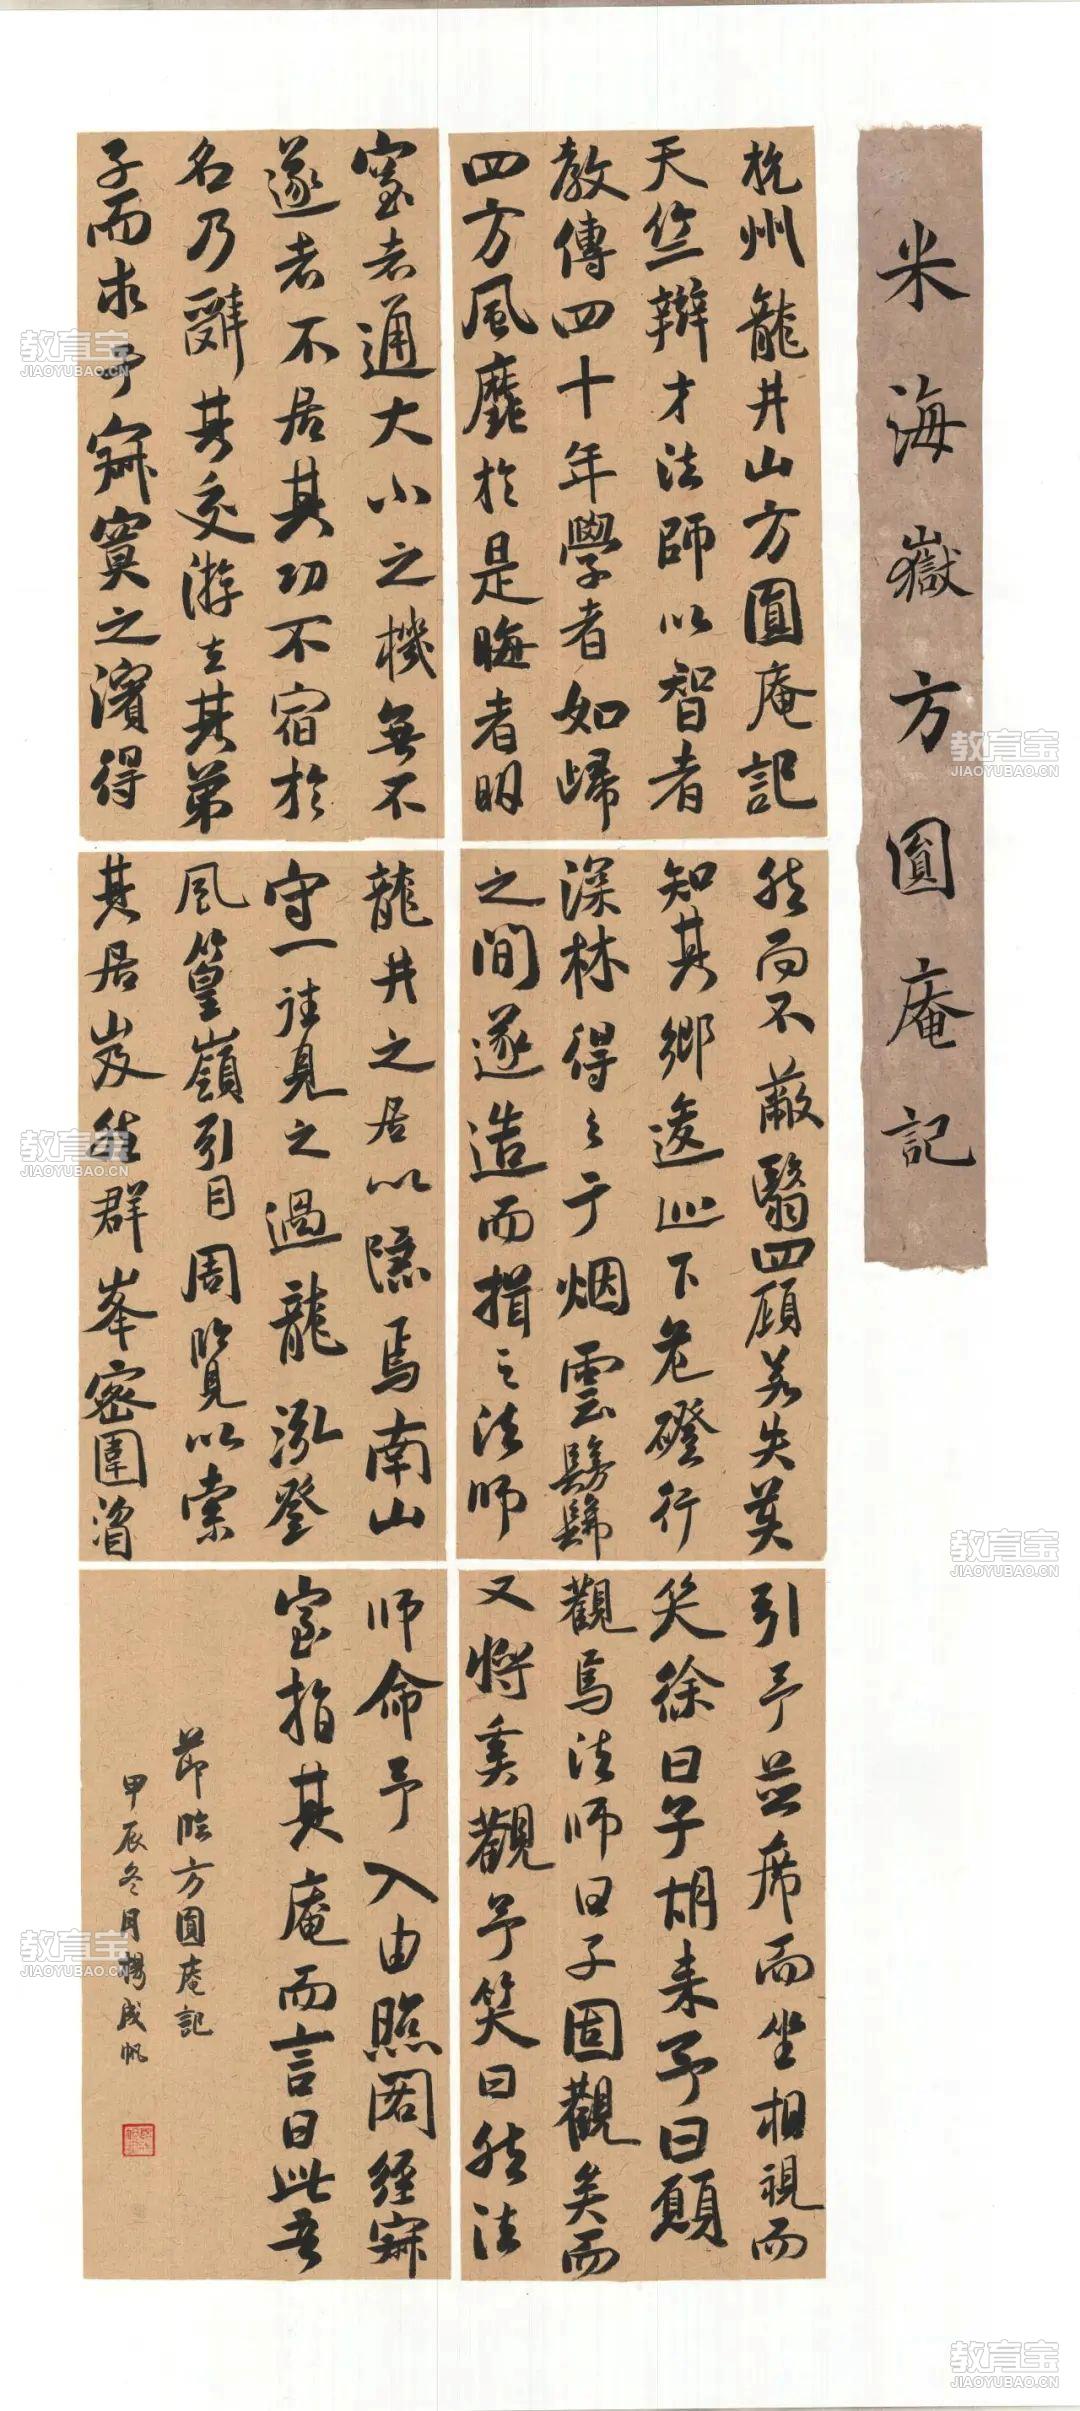 米海嶽方圓庵記
杭州龍井山方圓庵記
天竺辯才法師以智者
教傳四十年學者如歸
四方風靡於是晦者明
窒者通大小之機無不
遂者不居其功不宿於
名乃辭其交游去其弟
子而求于寂寞之濱得
龍井之居以隱焉南山
守一往見之過龍泓登
風篁嶺引目周覽以索
其居岌然群峯密圍溜
然而不蔽翳四顧若失莫
知其鄉逡巡下危磴行
深林得之于烟雲髣髴
之間遂造而揖之法師
引予並席而坐相視而
笑徐曰子胡來予曰願
觀焉法師曰子固觀矣而
又將奚觀予笑曰然法
師命予入由照閣經寂
室指其庵而言曰此吾
節臨方圓庵記
甲辰冬月楊成帆
教育宝
JIAOYUBAO.CN
教育宝
JIAOYUBAO.CN
教育宝
JIAOYUBAO.CN
教育宝
JIAOYUBAO.CN
教育宝
JIAOYUBAO.CN
教育宝
JIAOYUBAO.CN